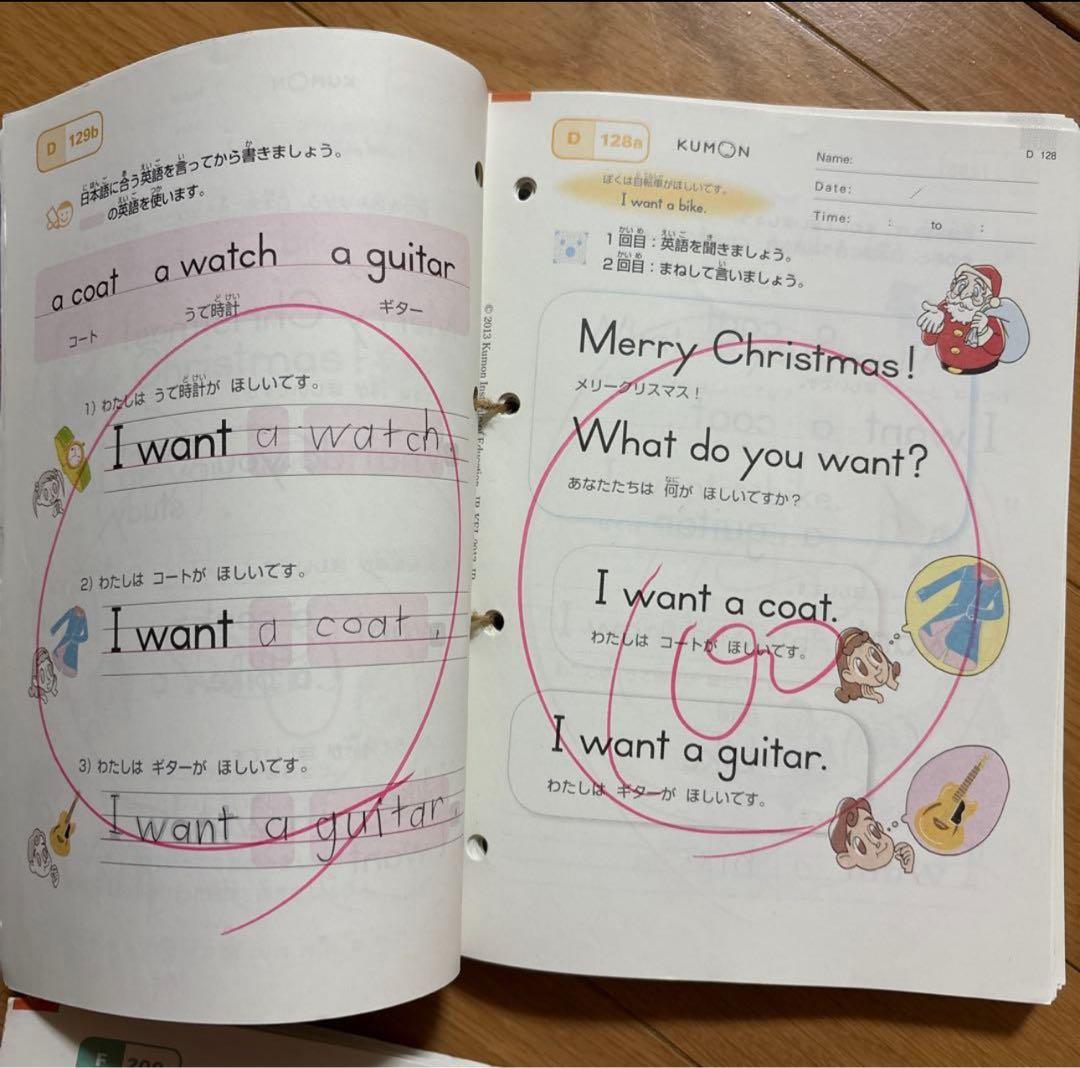 D 129b
日本語に合う英語を言ってから書きましょう。
の英語を使います。
a coat a watch a guitar
コート うで時計 ギター
1) わたしは うで時計が ほしいです。
I want a watch.
2) わたしは コートが ほしいです。
I want a coat.
3) わたしは ギターが ほしいです。
I want a guitar.
© 2013 Kumon
D 128a
KUMON
Name:
D 128
Date: /
Time: : to :
ぼくは自転車がほしいです。
I want a bike.
1回目：英語を聞きましょう。
2回目：まねして言いましょう。
Merry Christmas!
メリークリスマス！
What do you want?
あなたたちは 何が ほしいですか？
I want a coat.
わたしは コートが ほしいです。
100
I want a guitar.
わたしは ギターが ほしいです。
F 200